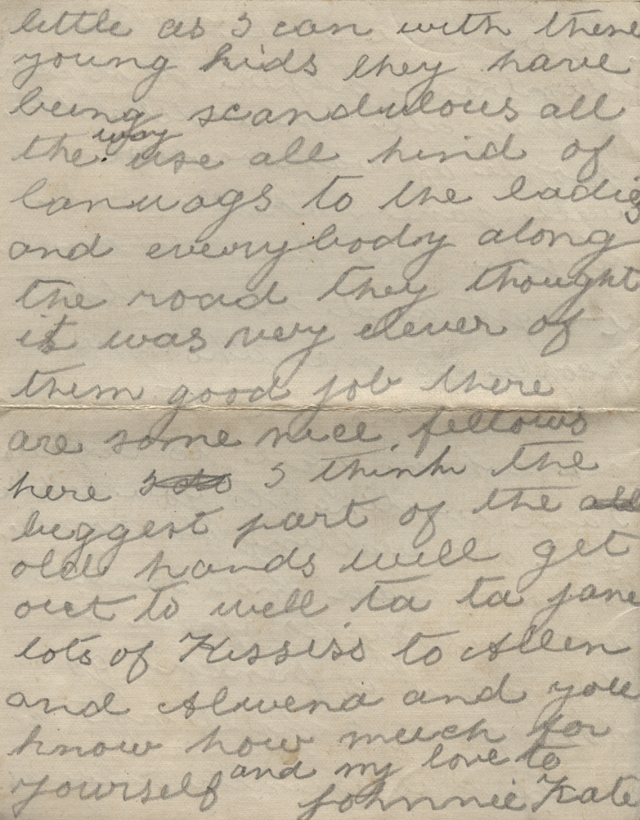 little as I can with these
young kids they have
being scandulous all
the way use all kind of
lanuags to the ladies
and everybody along
the road they thought
it was very clever of
them good job there
are some nice fellows
here I think the
biggest part of the
old hands will get
out to well ta ta jane
lots of Kississ to Allen
and Alwena and you
know how much for
yourself and my love to
Johnnie Kate